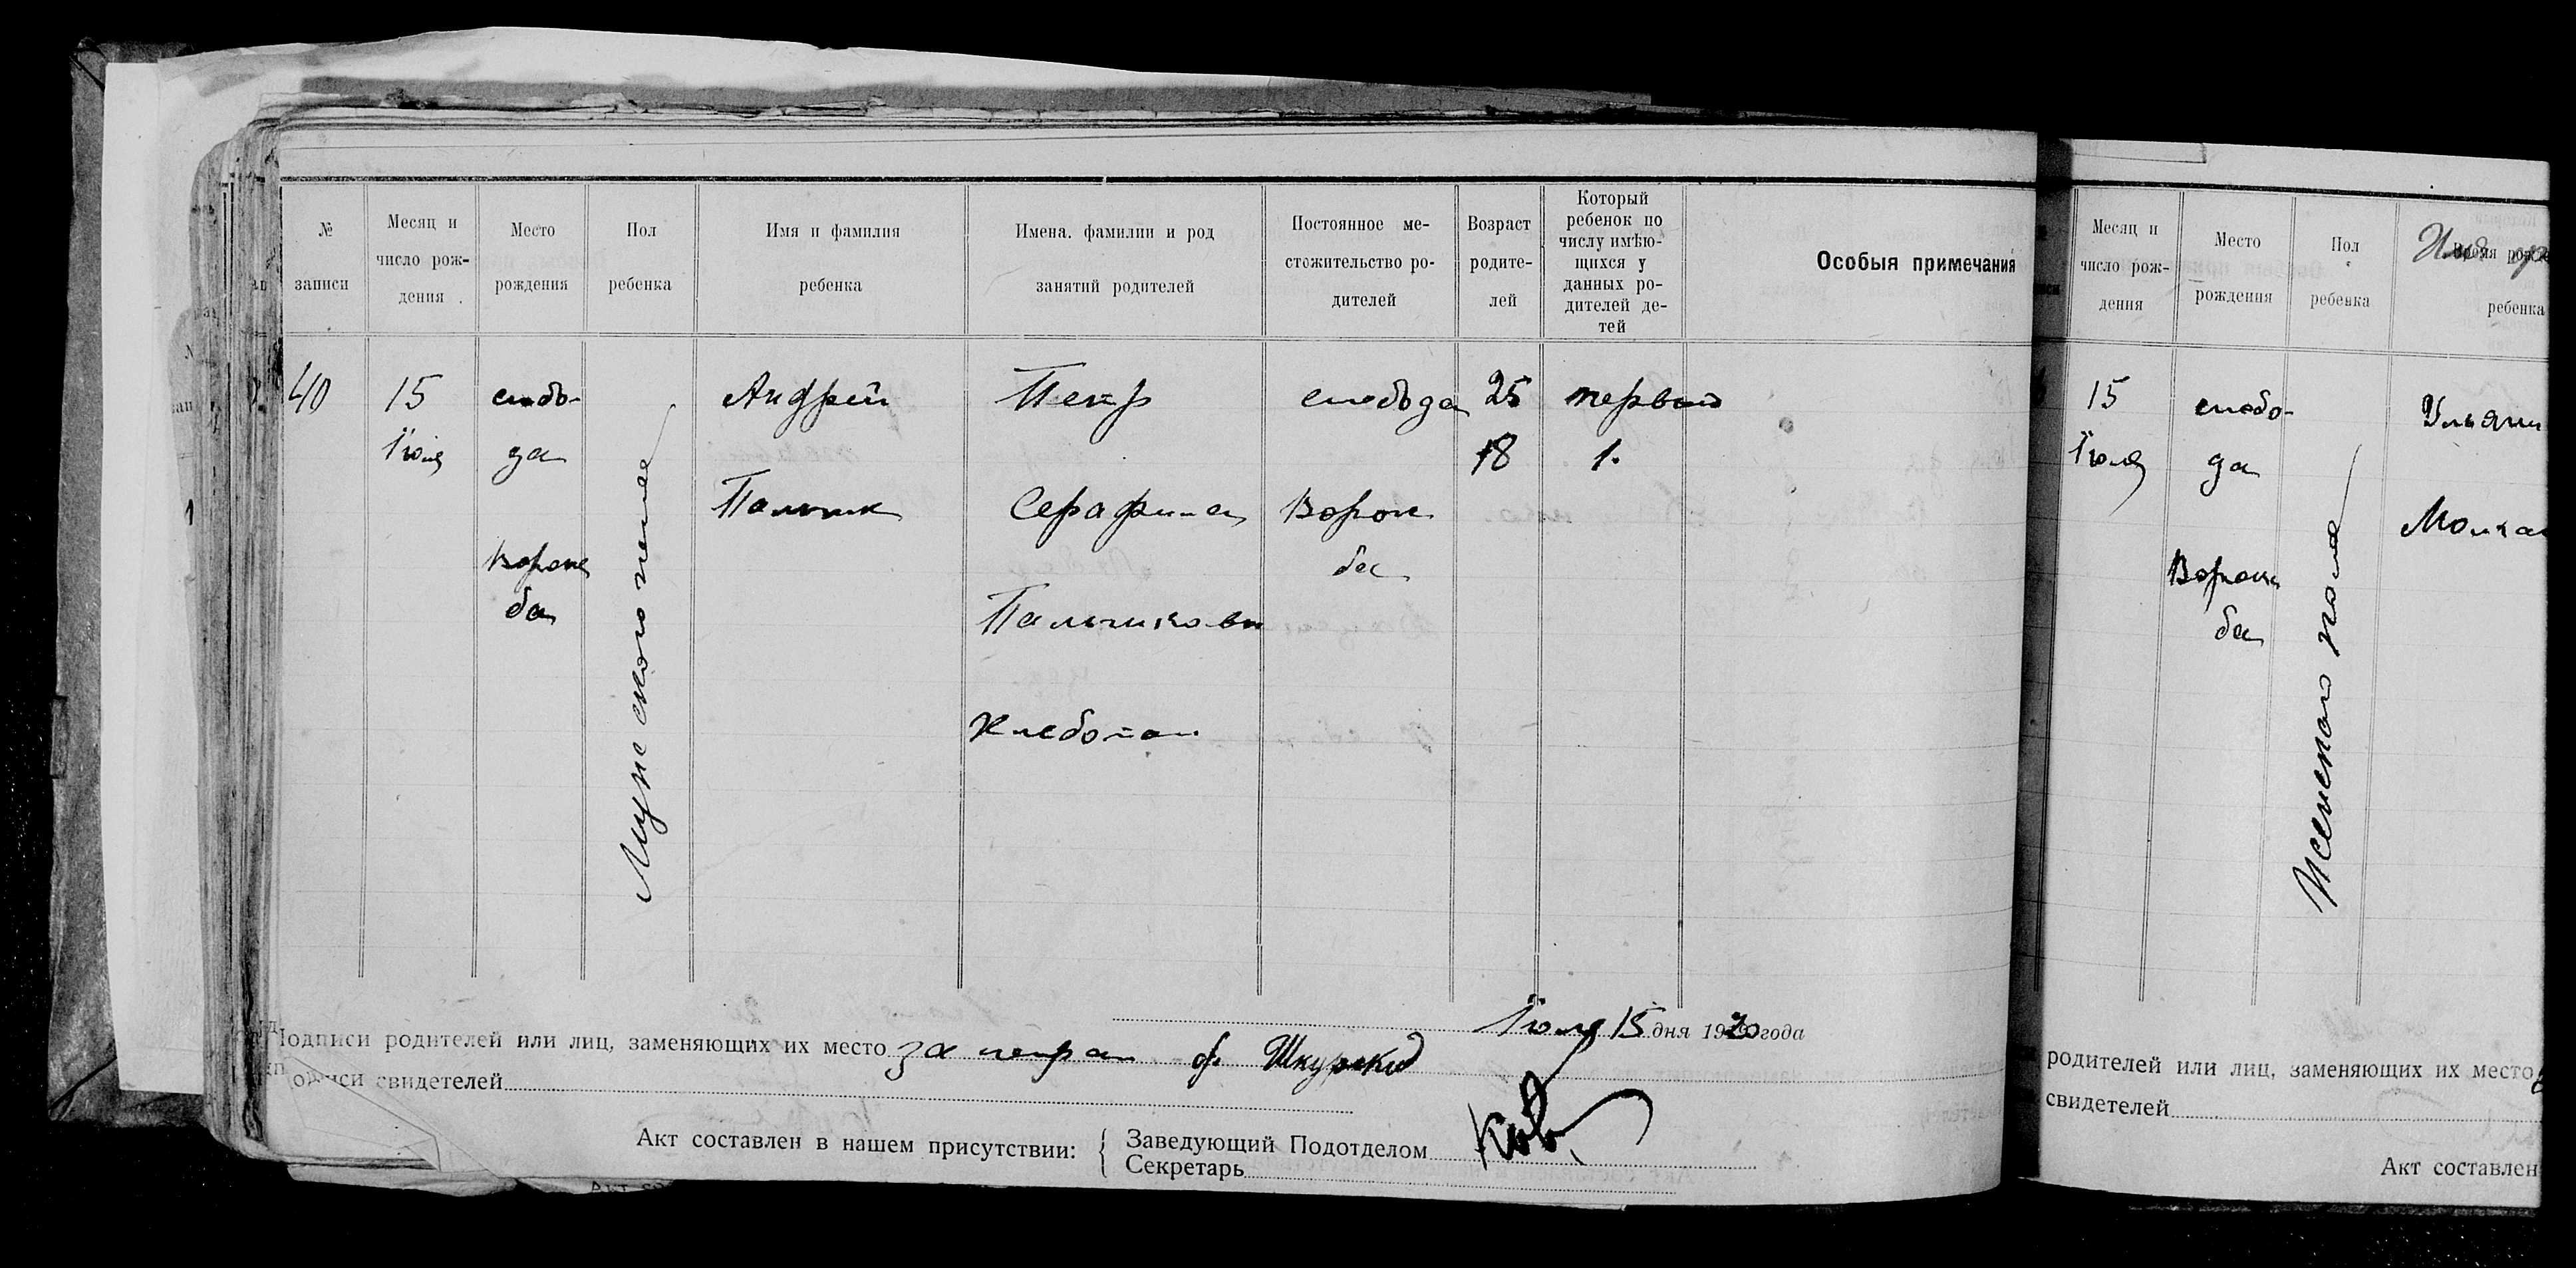 № записи
Месяц и число рождения
Место рождения
Пол ребенка
Имя и фамилия ребенка
Имена, фамилии и род занятий родителей
Постоянное местожительство родителей
Возраст родителей
Который ребенок по числу имѣющихся у данных родителей детей
Особыя примечания
40
15
Іюля
слобо-
да
Вороне
ба
Мужского пола
Андрей
Пальчик
Петр
Серафима
Пальчиковы
Хлебопаш
слобода
Ворон
ба
25
18
первый
1.
Іюля 15 дня 1920 года
Подписи родителей или лиц, заменяющих их место за петра ф Шкурский
Подписи свидетелей
Акт составлен в нашем присутствии:
Заведующий Подотделом
Секретарь
Месяц и число рождения
Место рождения
Пол ребенка
ребенка
15
Іюля
слобо-
да
Ворон
ба
Женского пола
Ульян
родителей или лиц, заменяющих их место
свидетелей
Акт составлен